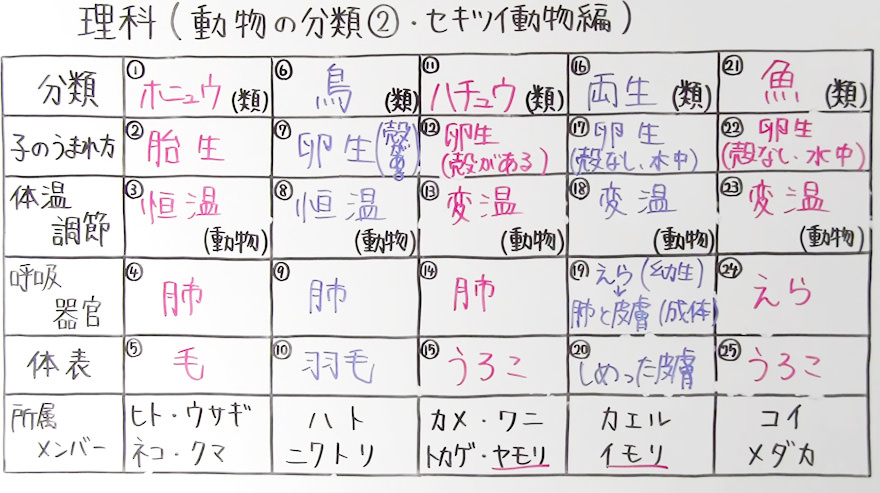 理科(動物の分類②・セキツイ動物編)
分類 ①ホニュウ(類) ⑥鳥(類) ⑪ハチュウ(類) ⑯両生(類) ㉑魚(類)
子のうまれ方 ②胎生 ⑦卵生(殻がある) ⑫卵生(殻がある) ⑰卵生(殻なし、水中) ㉒卵生(殻なし、水中)
体温調節 ③恒温(動物) ⑧恒温(動物) ⑬変温(動物) ⑱変温(動物) ㉓変温(動物)
呼吸器官 ④肺 ⑨肺 ⑭肺 ⑲えら(幼生)↓肺と皮膚(成体) ㉔えら
体表 ⑤毛 ⑩羽毛 ⑮うろこ ⑳しめった皮膚 ㉕うろこ
所属メンバー ヒト・ウサギ ネコ・クマ ハト ニワトリ カメ・ワニ トカゲ・ヤモリ カエル イモリ コイ メダカ